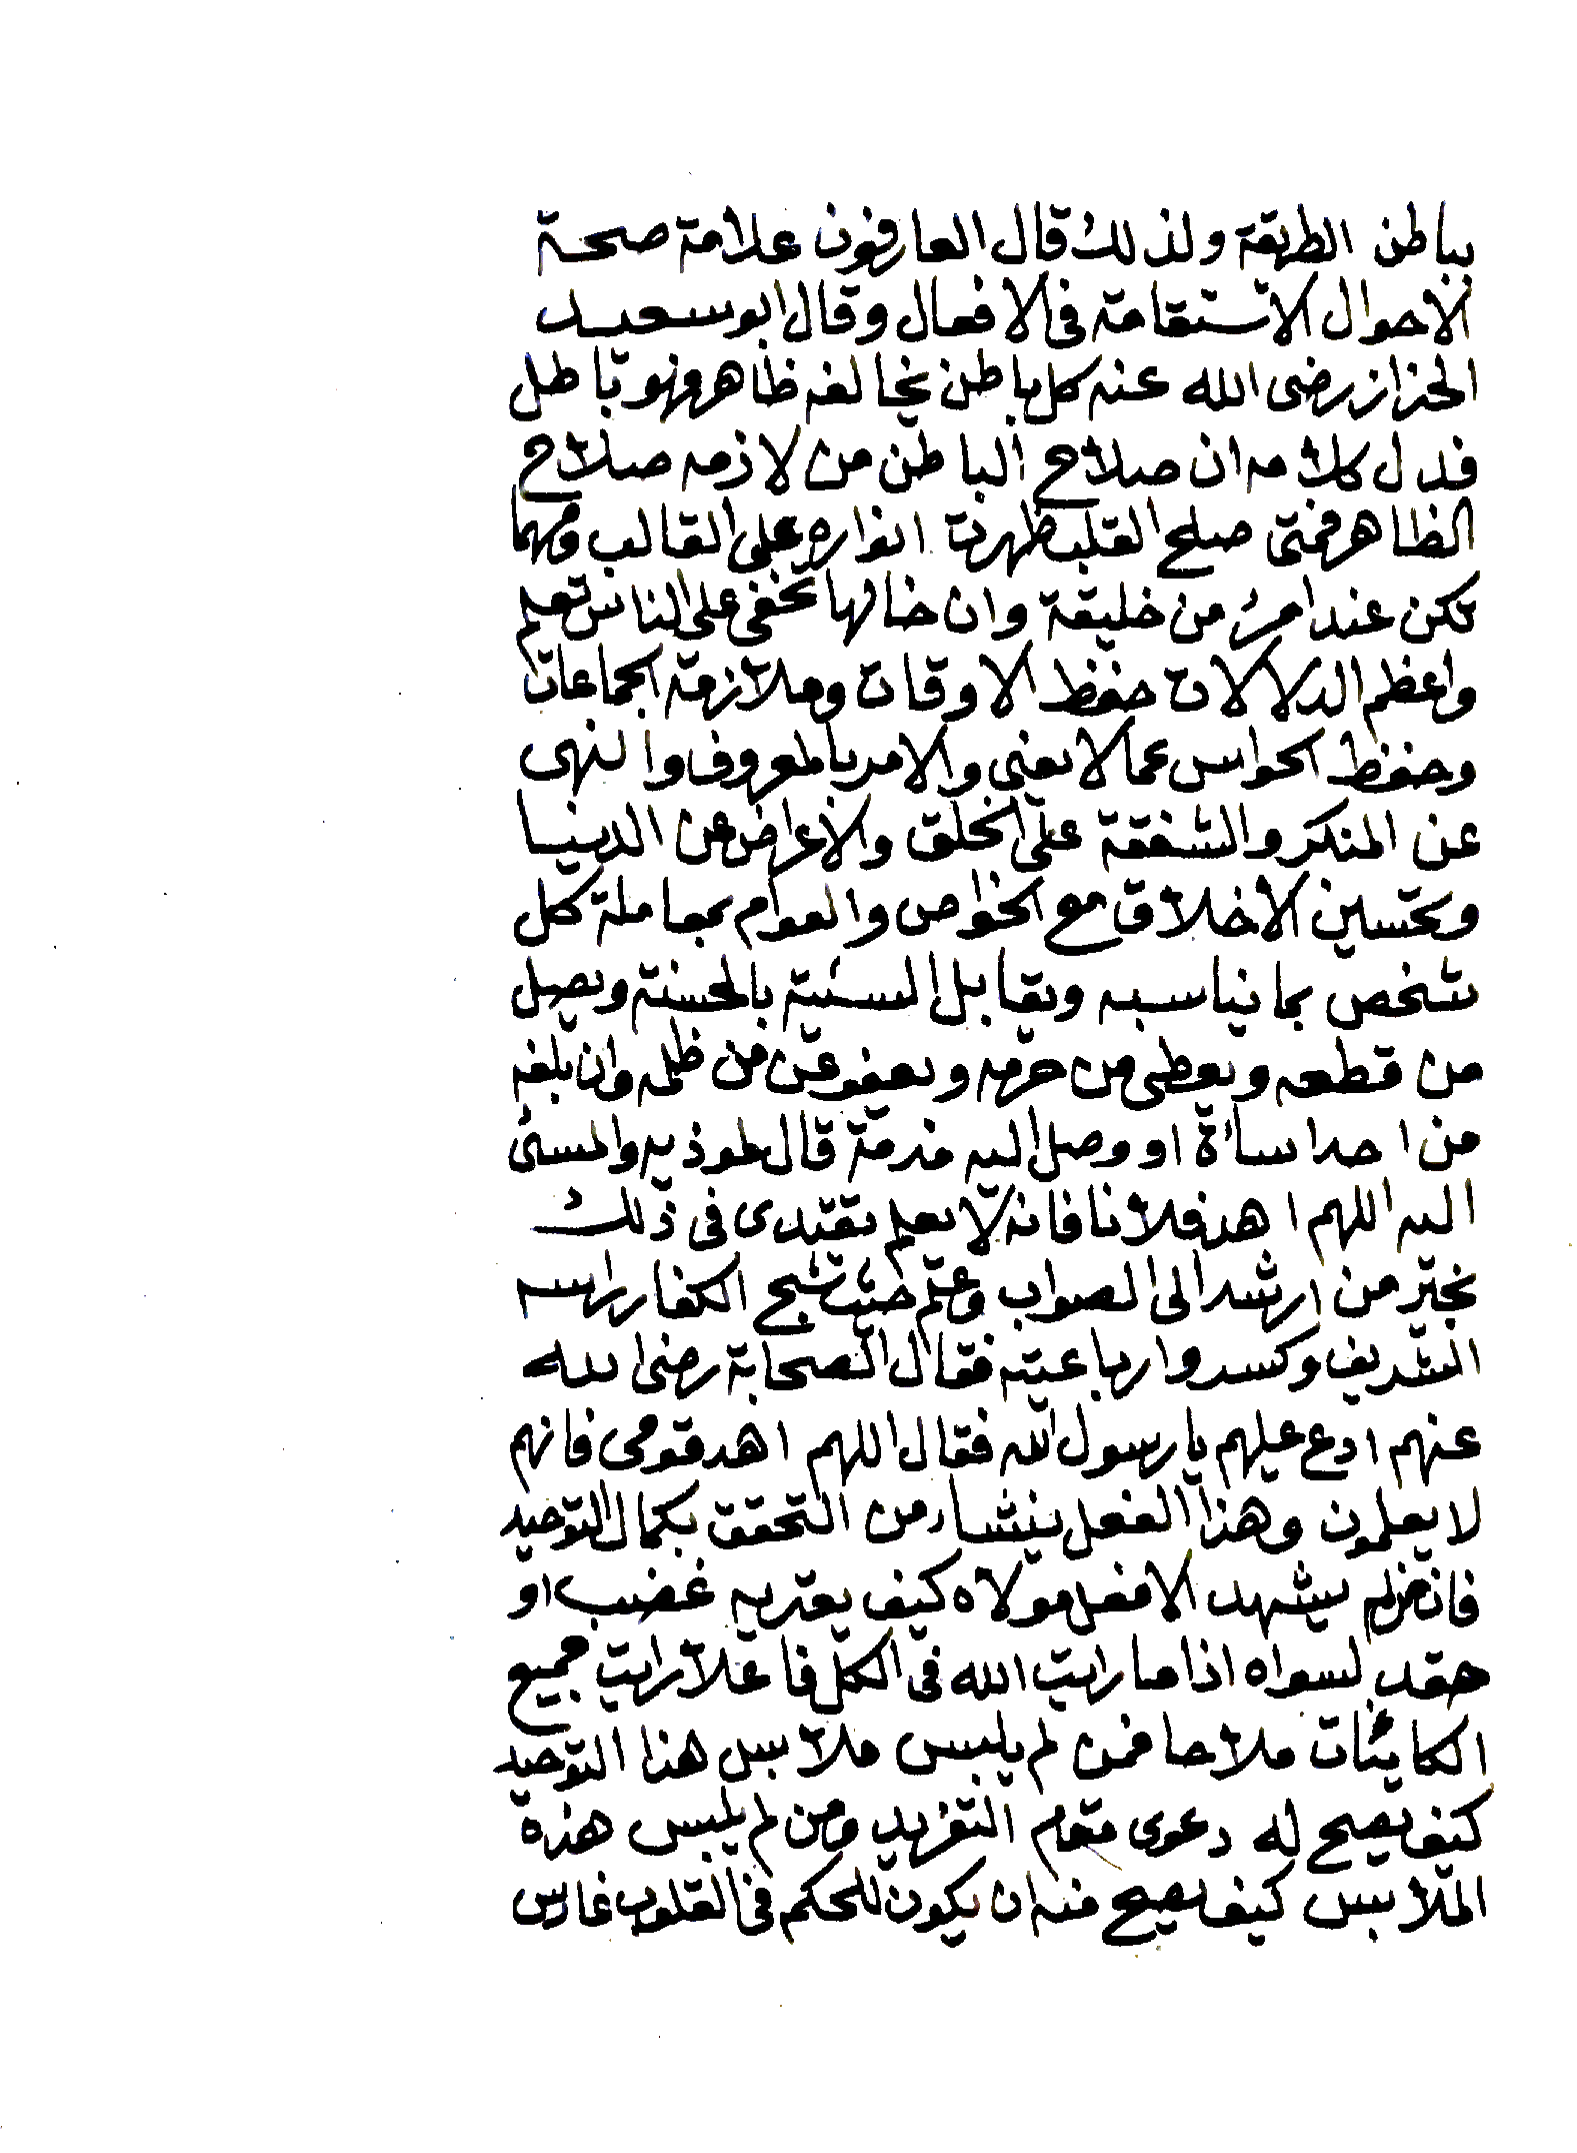 بباطن الطريقة ولذلك قال العارفون علامة صحة
الاحوال الاستقامة فى الافعال وقال ابو سعيد
الخراز رضى الله عنه كل باطن يخالفه ظاهر فهو باطل
فدل كلامه ان صلاح الباطن من لازمه صلاح
الظاهر فمتى صلح القلب ظهرت انواره على القالب ومهما
تكن عند امرئ من خليقة وان خالها تخفى على الناس تعلم
واعظم الدلالات حفظ الاوقات وملازمة الجماعات
وحفظ الحواس عما لا يعنى والامر بالمعروف والنهى
عن المنكر والشفقة على الخلق والاعراض عن الدنيا
وتحسين الاخلاق مع الخواص والعوام بمعاملة كل
شخص بما يناسبه ويقابل السيئة بالحسنة ويصل
من قطعه ويعطى من حرمه ويعفو عن من ظلمه وان بلغه
من احد اساءة او وصل اليه مذمة قال لموذيه والمسئ
اليه اللهم اهد فلانا فانه لا يعلم يقتدى فى ذلك
بخير من ارشد الى الصواب وعلم حيث شج الكفار راسه
الشريف وكسروا رباعيته فقال الصحابة رضى الله
عنهم ادع عليهم يا رسول الله فقال اللهم اهد قومى فانهم
لا يعلمون وهذا الفعل ينشاء من التحقق بكمال التوحيد
فان من لم يشهد الا فعل مولاه كيف يعتريه غضب او
حقد لسواه اذا ما رايت الله فى الكل فاعلا رايت جميع
الكائنات ملاحا فمن لم يلبس ملابس هذا التوحيد
كيف يصح له دعوى مقام التفريد ومن لم يلبس هذه
الملابس كيف يصح منه ان يكون للحكم فى القلوب غارس